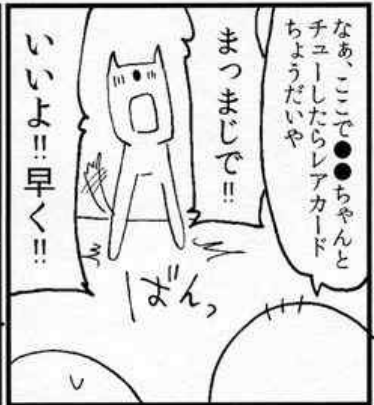 なぁ、ここで●●ちゃんと
チューしたらレアカード
ちょうだいや
まっまじで!!
いいよ!!早く!!
ばんっ